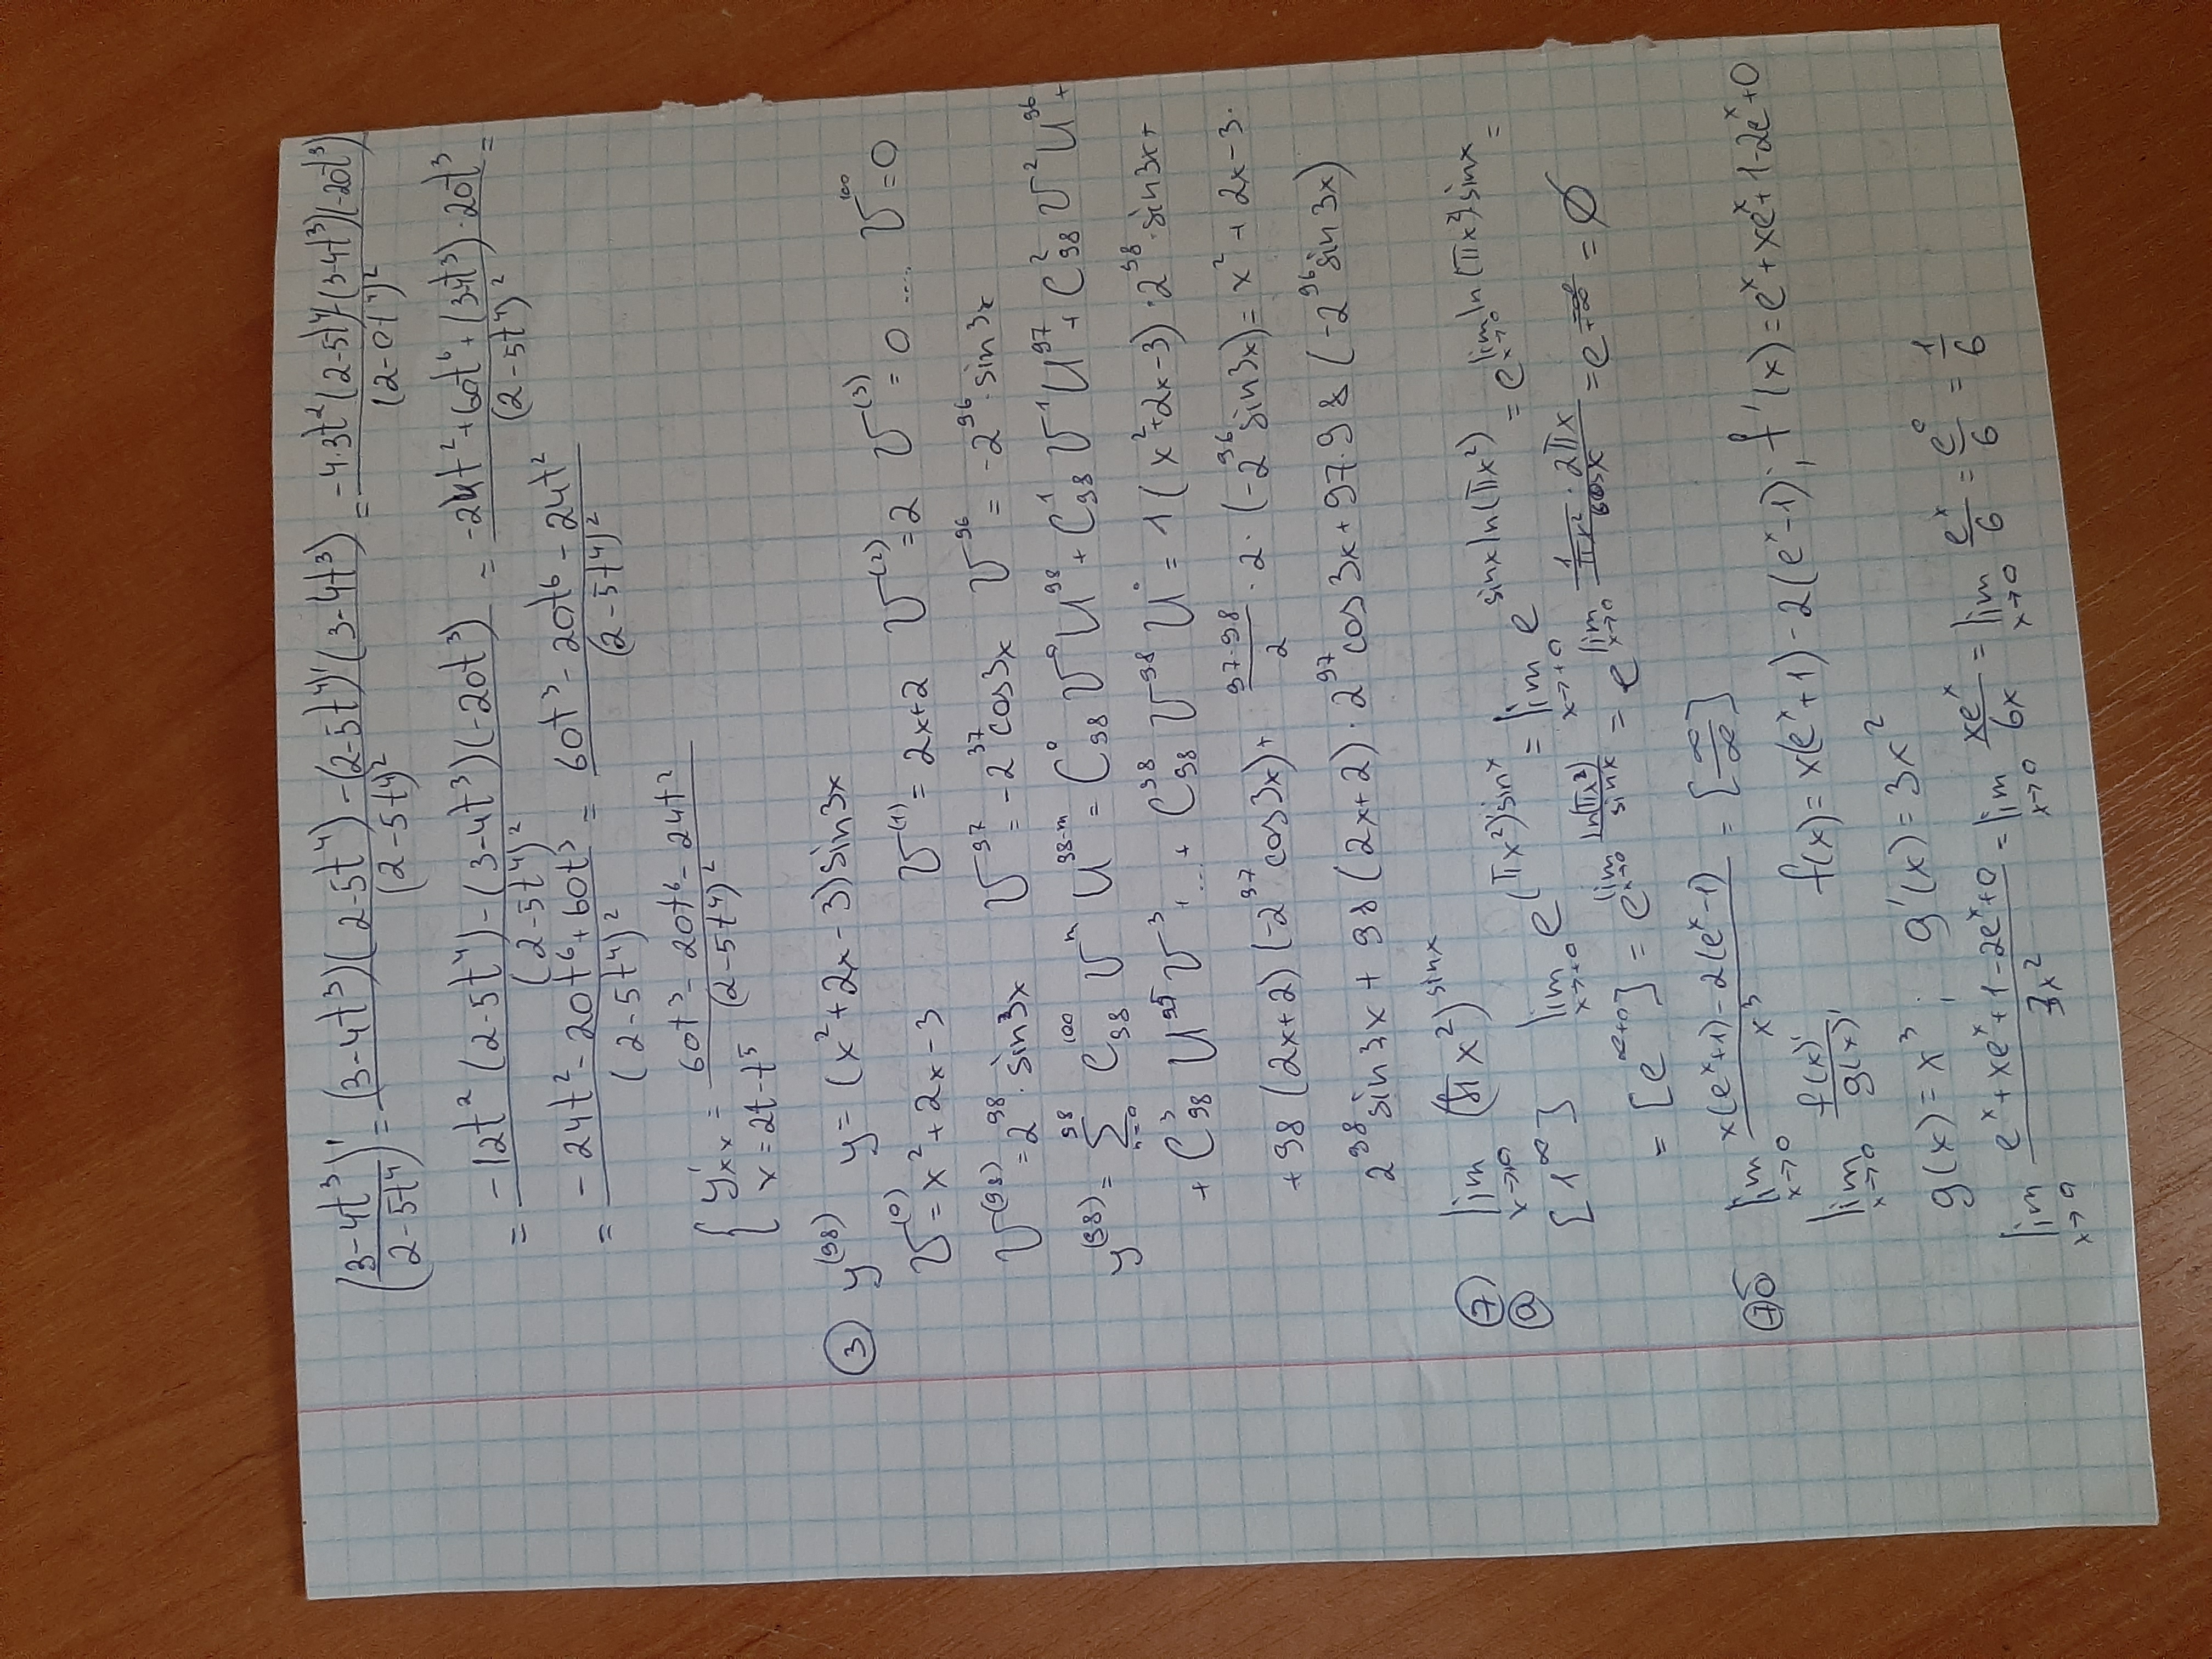 (3-4t³ / 2-5t⁴)' = (3-4t³)(2-5t⁴) - (2-5t⁴)'(3-4t³) / (2-5t⁴)² = -4·3t²(2-5t⁴)-(3-4t³)(-20t³) / (2-0t⁴)²
= -12t²(2-5t⁴)-(3-4t³)(-20t³) / (2-5t⁴)² = -24t²+60t⁶+(3-4t³)·20t³ / (2-5t⁴)² =
= -24t²-20t⁶+60t³ / (2-5t⁴)² = 60t³-20t⁶-24t² / (2-5t⁴)²
{ y'xx = 60t³-20t⁶-24t² / (2-5t⁴)²
x = 2t-t⁵
③ y⁽⁹⁸⁾ y = (x²+2x-3)sin3x
V⁽⁰⁾ = x²+2x-3 V⁽¹⁾ = 2x+2 V⁽²⁾ = 2 V⁽³⁾ = 0 .... V¹⁰⁰ = 0
V⁽⁹⁸⁾ = 2⁹⁸·sin3x V⁹⁷ = -2³⁷cos3x V⁹⁶ = -2⁹⁶·sin3x
y⁽⁹⁸⁾ = ⁹⁸∑ₙ₌₀ C₉₈¹⁰⁰ Vᵐ U⁹⁸⁻ᵐ = C₉₈⁰ V⁰ U⁹⁸ + C₉₈¹ V¹ U⁹⁷ + C₉₈² V² U⁹⁶ +
+ C₉₈³ U⁹⁵ V³ + ... + C₉₈⁹⁸ V⁹⁸ U⁰ = 1(x²+2x-3)·2⁹⁸·sin3x+
+98(2x+2)(-2⁹⁷cos3x)+ 97·98/2 ·2·(-2⁹⁶sin3x) = x²+2x-3·
2⁹⁸sin3x + 98(2x+2)·2⁹⁷cos3x+97·98(-2⁹⁶sin3x)
⑦ lim x→+0 (πx²)^sinx
ⓐ [1^∞] lim x→+0 e^(πx²)sinx = lim x→+0 e^sinxln(πx²) = e^lim x→0 ln(πx²)·sinx =
= [e^∞+0] = e^lim x→0 ln(πx²)/sinx = e^lim x→0 (1/πx² · 2πx)/cosx = = ∅
⑦б lim x→0 x(eˣ+1)-2(eˣ-1) / x³ = [∞/∞]
lim x→0 f(x)'/g(x)' f(x) = x(eˣ+1)-2(eˣ-1); f'(x) = eˣ+xeˣ+1-2eˣ+0
g(x) = x³; g'(x) = 3x²
lim x→0 eˣ+xeˣ+1-2eˣ+0 / 3x² = lim x→0 xeˣ/6x = lim x→0 eˣ/6 = e⁰/6 = 1/6